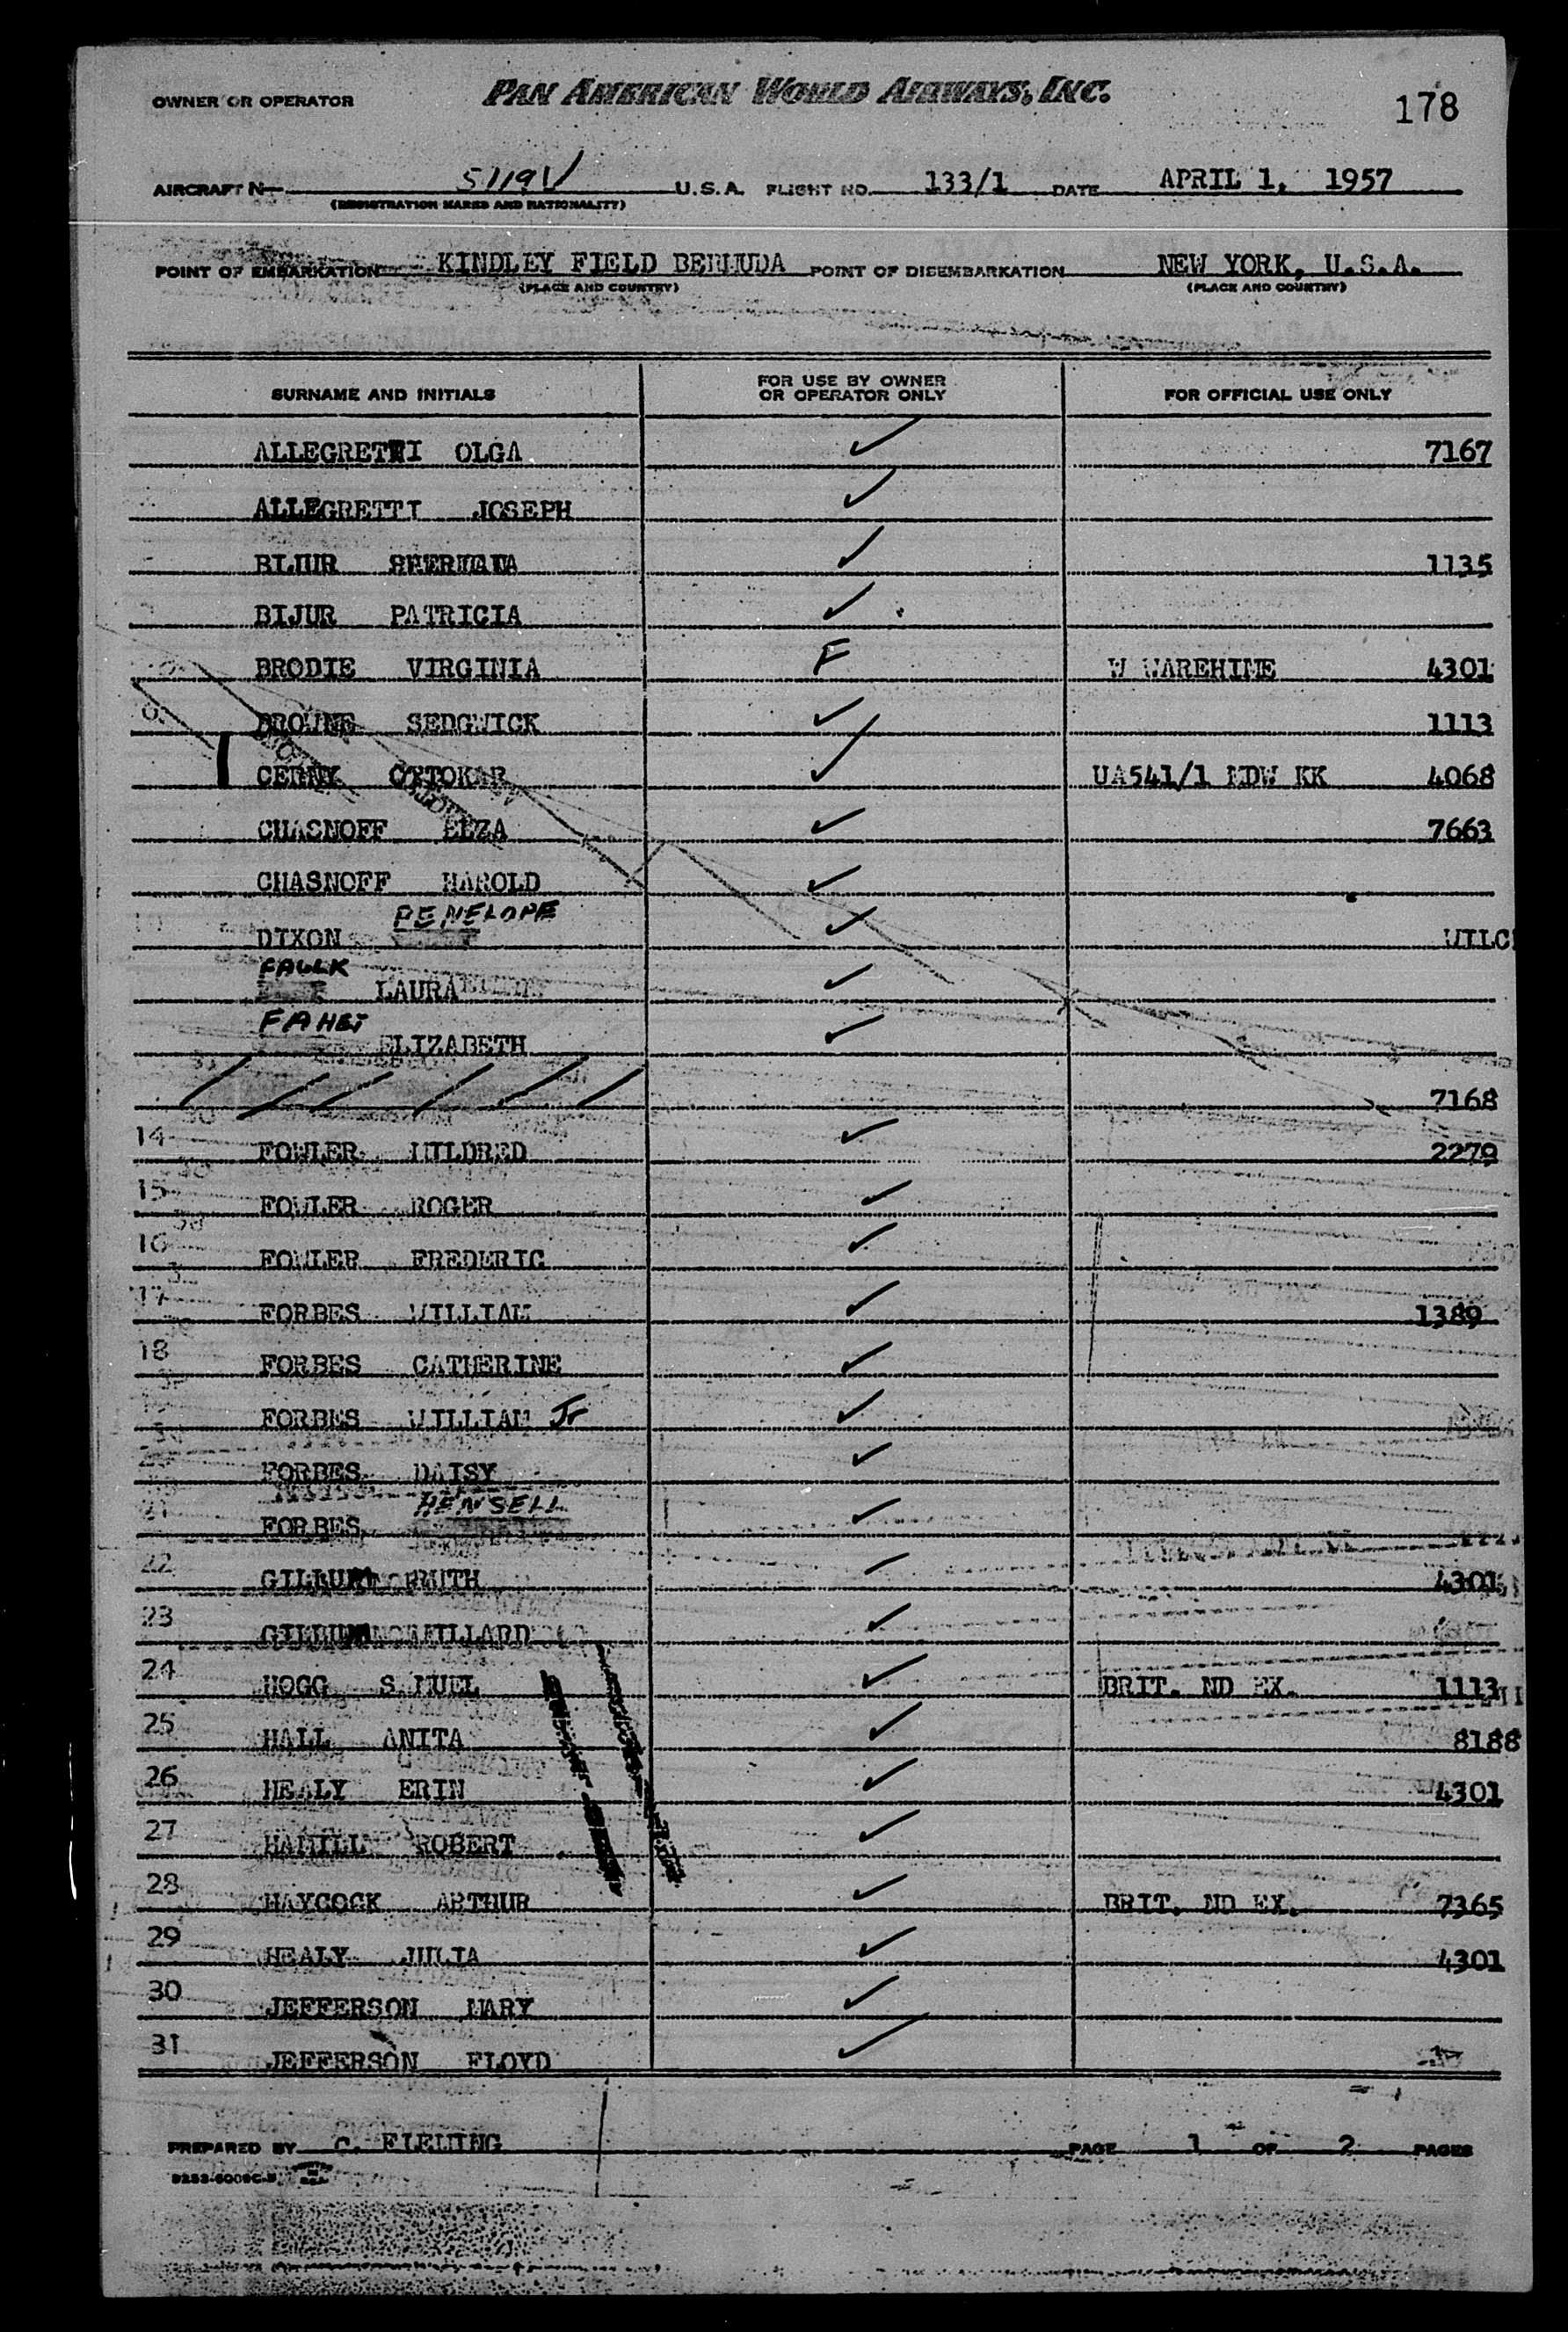 OWNER OR OPERATOR PAN AMERICAN WORLD AIRWAYS, INC. 178
AIRCRAFT N 5119V U.S.A. FLIGHT NO. 133/1 DATE APRIL 1, 1957
(REGISTRATION MARKS AND NATIONALITY)
POINT OF EMBARKATION KINDLEY FIELD BERMUDA POINT OF DISEMBARKATION NEW YORK, U.S.A.
(PLACE AND COUNTRY) (PLACE AND COUNTRY)
SURNAME AND INITIALS FOR USE BY OWNER OR OPERATOR ONLY FOR OFFICIAL USE ONLY
ALLEGRETTI OLGA ✓ 7167
ALLEGRETTI JOSEPH ✓
BIJUR ✓ 1135
BIJUR PATRICIA ✓
BRODIE VIRGINIA F W WAREHIME 4301
BROWNE SEDGWICK ✓ 1113
CERNY OTTOKAR ✓ UA541/1 MDW KK 4068
CHASNOFF ELZA ✓ 7663
CHASNOFF HAROLD ✓
DIXON PENELOPE ✓ WILC
FAULK LAURA ✓
ELIZABETH ✓
7168
14 FOWLER MILDRED ✓ 2279
15 FOWLER ROGER ✓
16 FOWLER FREDERIC ✓
17 FORBES WILLIAM ✓ 1389
18 FORBES CATHERINE ✓
FORBES WILLIAM Jr ✓
FORBES DAISY ✓
21 FORBES HENSELL ✓
22 RUTH ✓ 4301
23 WILLARD ✓
24 HOGG SAMUEL ✓ BRIT. ND EX. 1113
25 HALL ANITA ✓ 8188
26 HEALY ERIN ✓ 4301
27 HAMILL ROBERT ✓
28 HAYCOCK ARTHUR ✓ BRIT. ND EX. 7365
29 HEALY JULIA ✓ 4301
30 JEFFERSON MARY ✓
31 JEFFERSON FLOYD ✓
PREPARED BY C. FLEMING PAGE 1 OF 2 PAGES